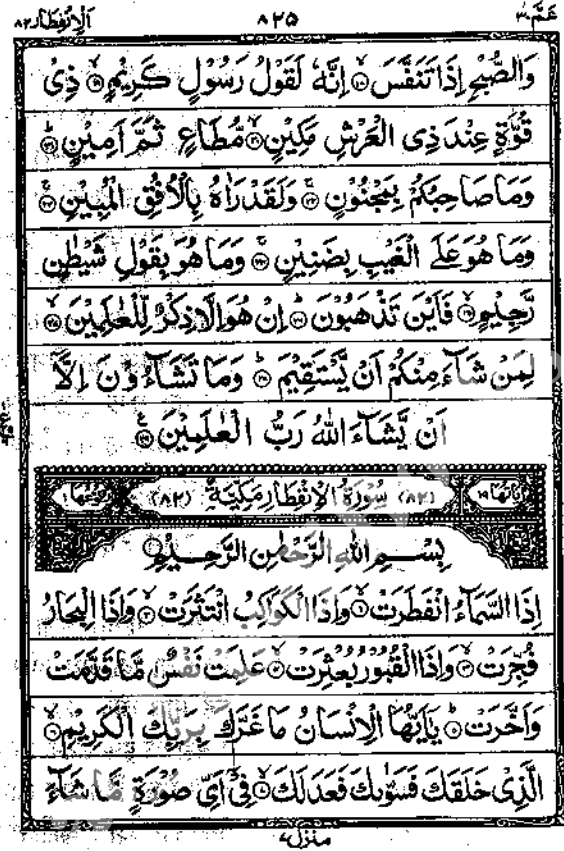 عَمَّ ٣٠ ٨٢٥ اَلْاِنْفِطَار ٨٢
وَالصُّبْحِ اِذَا تَنَفَّسَ ۙ﴿۱۸﴾ اِنَّهٗ لَقَوْلُ رَسُوْلٍ كَرِيْمٍ ۙ﴿۱۹﴾ ذِىْ
قُوَّةٍ عِنْدَ ذِى الْعَرْشِ مَكِيْنٍ ۙ﴿۲۰﴾ مُّطَاعٍ ثَمَّ اَمِيْنٍ ؕ﴿۲۱﴾
وَمَا صَاحِبُكُمْ بِمَجْنُوْنٍ ۚ﴿۲۲﴾ وَلَقَدْ رَاٰهُ بِالْاُفُقِ الْمُبِيْنِ ۚ﴿۲۳﴾
وَمَا هُوَ عَلَى الْغَيْبِ بِضَنِيْنٍ ۚ﴿۲۴﴾ وَمَا هُوَ بِقَوْلِ شَيْطٰنٍ
رَّجِيْمٍ ۙ﴿۲۵﴾ فَاَيْنَ تَذْهَبُوْنَ ؕ﴿۲۶﴾ اِنْ هُوَ اِلَّا ذِكْرٌ لِّلْعٰلَمِيْنَ ۙ﴿۲۷﴾
لِمَنْ شَآءَ مِنْكُمْ اَنْ يَّسْتَقِيْمَ ؕ﴿۲۸﴾ وَمَا تَشَآءُوْنَ اِلَّاۤ
اَنْ يَّشَآءَ اللّٰهُ رَبُّ الْعٰلَمِيْنَ ﴿۲۹﴾
اٰيَاتُهَا ١٩ (٨٢) سُوْرَةُ الْاِنْفِطَارِ مَكِّيَّةٌ (٨٢) رُكُوْعُهَا ١
بِسْمِ اللّٰهِ الرَّحْمٰنِ الرَّحِيْمِ
اِذَا السَّمَآءُ انْفَطَرَتْ ۙ﴿۱﴾ وَاِذَا الْكَوَاكِبُ انْتَثَرَتْ ۙ﴿۲﴾ وَاِذَا الْبِحَارُ
فُجِّرَتْ ۙ﴿۳﴾ وَاِذَا الْقُبُوْرُ بُعْثِرَتْ ۙ﴿۴﴾ عَلِمَتْ نَفْسٌ مَّا قَدَّمَتْ
وَاَخَّرَتْ ؕ﴿۵﴾ يٰۤاَيُّهَا الْاِنْسَانُ مَا غَرَّكَ بِرَبِّكَ الْكَرِيْمِ ۙ﴿۶﴾
الَّذِىْ خَلَقَكَ فَسَوّٰىكَ فَعَدَلَكَ ۙ﴿۷﴾ فِىْۤ اَىِّ صُوْرَةٍ مَّا شَآءَ
منزل ٧